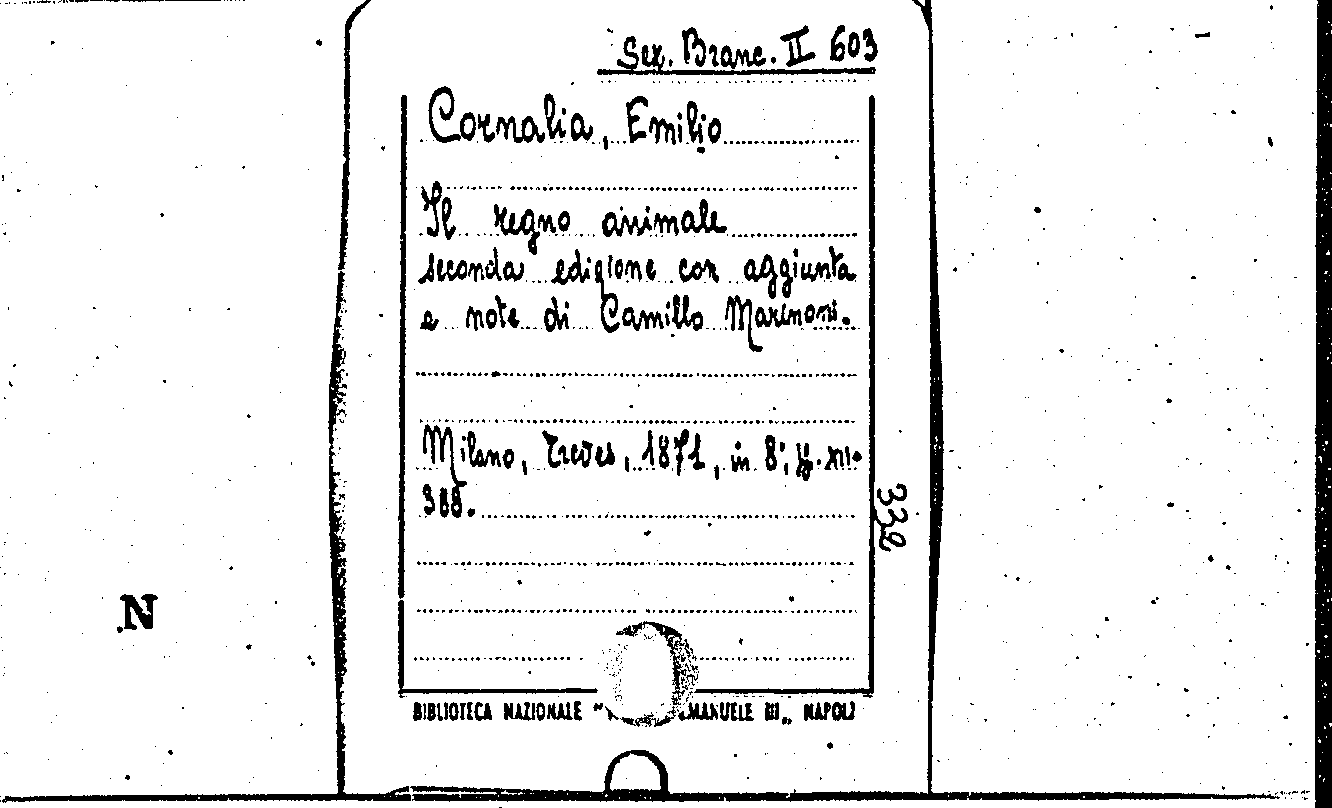 Sez. Branc. II 603
Cornalia, Emilio
Il regno animale
seconda edizione con aggiunta
e note di Camillo Marinoni.
Milano, Treves, 1871, in 8°, pp. XII-
388.
332
N
BIBLIOTECA NAZIONALE " EMANUELE III„ NAPOLI